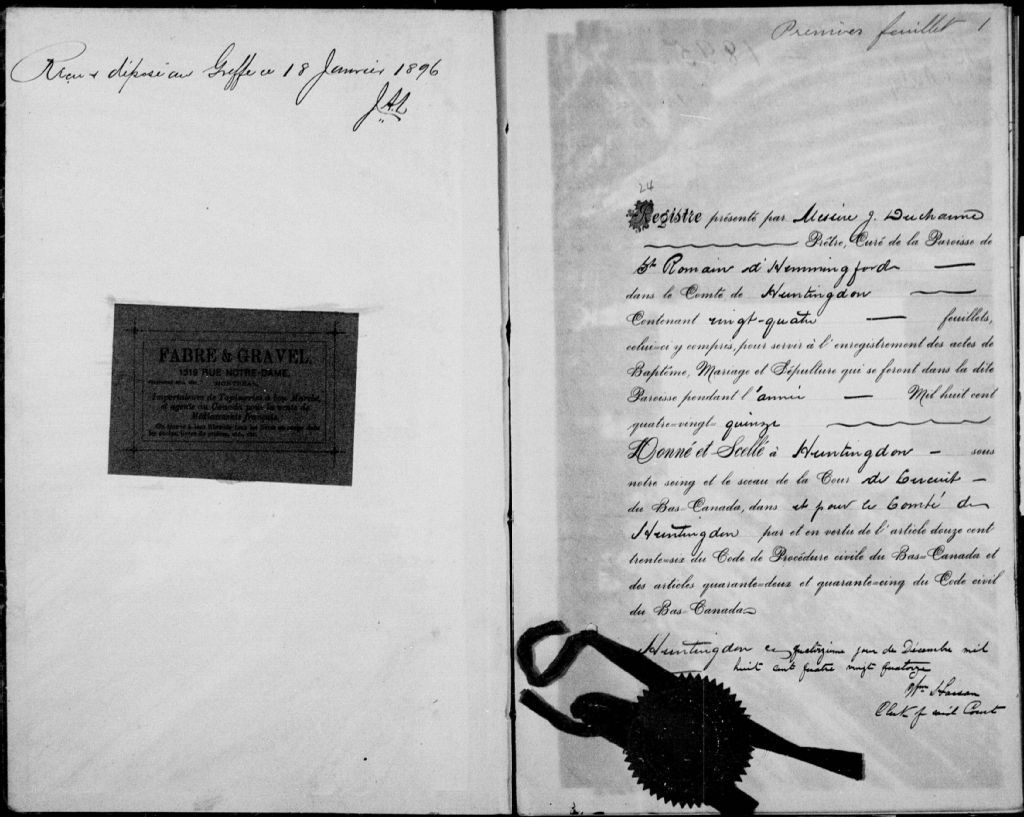 Reçu & déposé au Greffe ce 18 Janvier 1896
FABRE & GRAVEL,
1219 RUE NOTRE-DAME,
MONTREAL.
Importateurs de Tapisseries à bon Marché,
et agents au Canada pour la vente de
Médicaments français.
Premier feuillet 1
24
Registre présenté par Messire J. Ducharme
Prêtre, Curé de la Paroisse de
St Romain d'Hemmingford
dans le Comté de Huntingdon
Contenant vingt-quatre feuillets,
celui-ci y compris, pour servir à l'enregistrement des actes de
Baptême, Mariage et Sépulture qui se feront dans la dite
Paroisse pendant l'année Mil huit cent
quatre-vingt-quinze
Donné et Scellé à Huntingdon sous
notre seing et le sceau de la Cour de Circuit
du Bas-Canada, dans et pour le Comté de
Huntingdon par et en vertu de l'article douze cent
trente-six du Code de Procédure civile du Bas-Canada et
des articles quarante-deux et quarante-cinq du Code civil
du Bas-Canada
Huntingdon ce quatorzieme jour de Décembre mil
huit cent quatre vingt quatorze
Wm
Clerk of said Court